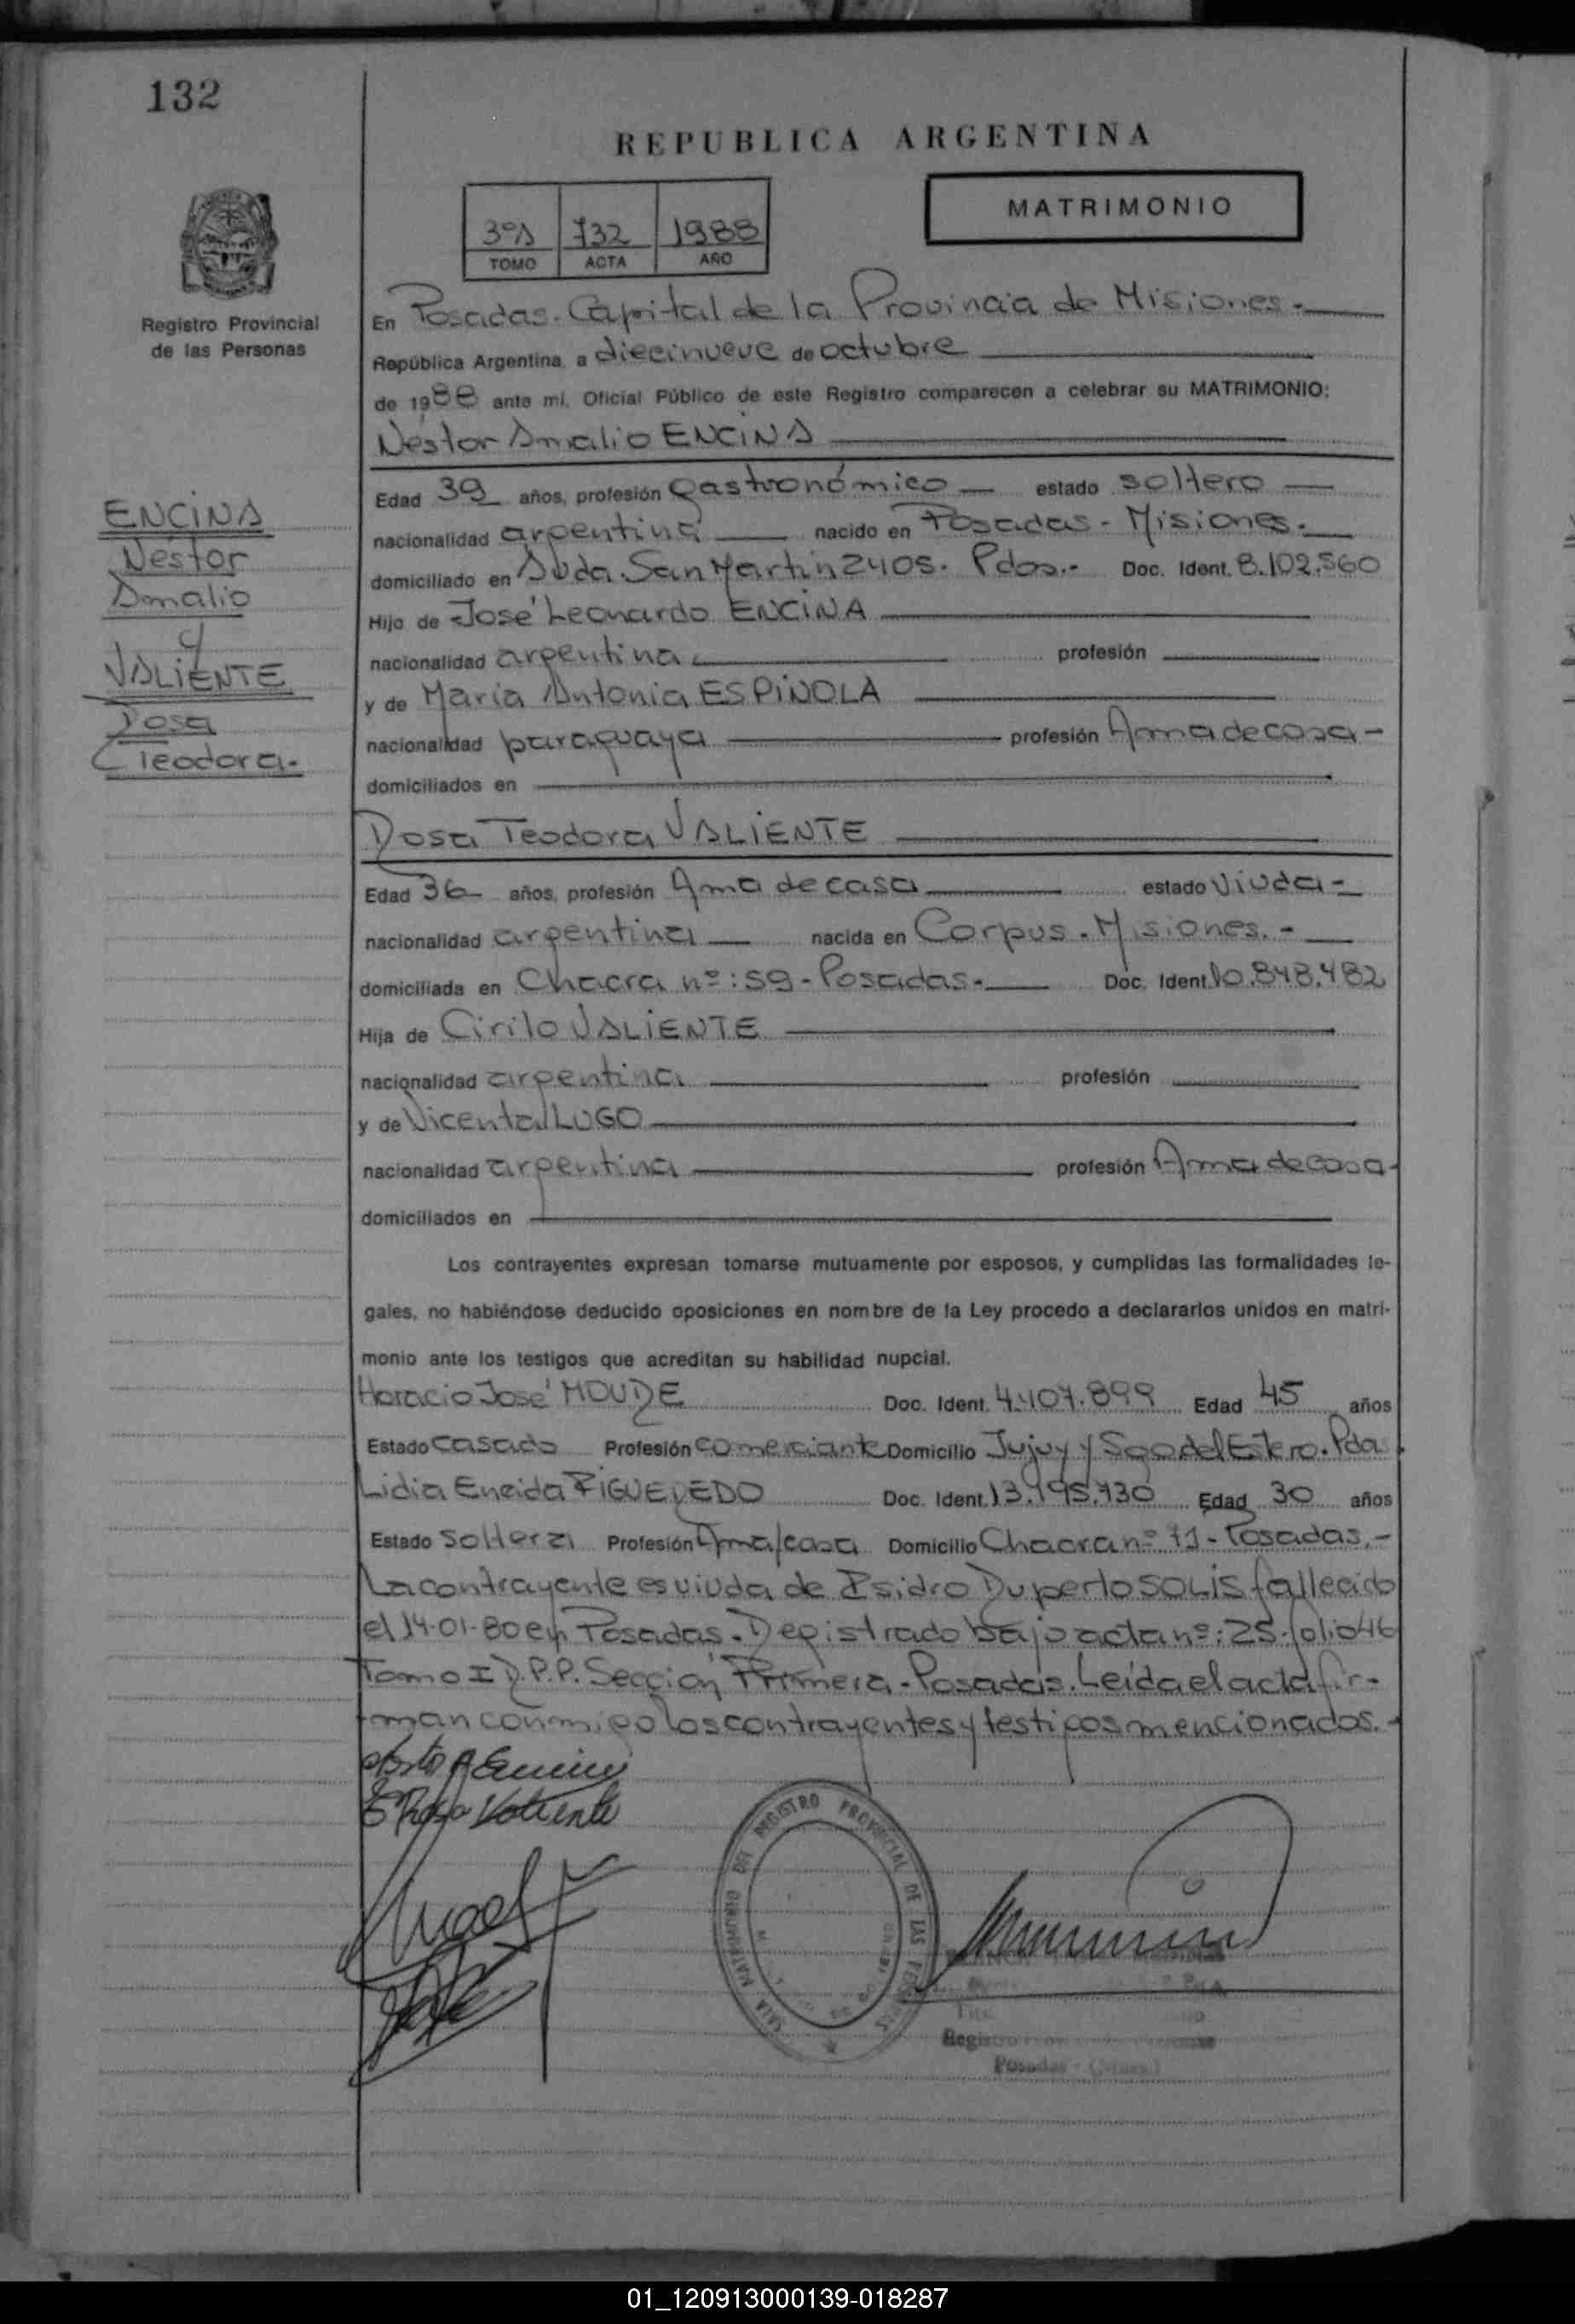 132
REPUBLICA ARGENTINA
MATRIMONIO
3ºA 732 1988
TOMO ACTA AÑO
Registro Provincial
de las Personas
En Posadas. Capital de la Provincia de Misiones.
República Argentina, a diecinueve de octubre
de 1988 ante mí, Oficial Público de este Registro comparecen a celebrar su MATRIMONIO:
Néstor Amalio ENCINA
ENCINA
Néstor
Amalio
y
VALIENTE
Rosa
Teodora.
Edad 39 años, profesión Gastronómico estado soltero
nacionalidad argentina nacido en Posadas - Misiones.
domiciliado en Avda. San Martín 2405. Pdas.- Doc. Ident. 8.102.560
Hijo de José Leonardo ENCINA
nacionalidad argentina profesión
y de María Antonia ESPINOLA
nacionalidad paraguaya profesión Ama de casa -
domiciliados en
Rosa Teodora VALIENTE
Edad 36 años, profesión Ama de casa estado viuda -
nacionalidad argentina nacida en Corpus. Misiones. -
domiciliada en Chacra nº: 59 - Posadas.- Doc. Ident. 10.848.482
Hija de Cirilo VALIENTE
nacionalidad argentina profesión
y de Vicenta LUGO
nacionalidad argentina profesión Ama de casa -
domiciliados en
Los contrayentes expresan tomarse mutuamente por esposos, y cumplidas las formalidades le-
gales, no habiéndose deducido oposiciones en nombre de la Ley procedo a declararlos unidos en matri-
monio ante los testigos que acreditan su habilidad nupcial.
Horacio José Doc. Ident. 4.407.899 Edad 45 años
Estado casado Profesión comerciante Domicilio Jujuy y Sgo del Estero. Pdas.
Lidia Eneida FIGUEREDO Doc. Ident. 13.195.730 Edad 30 años
Estado soltera Profesión Ama/casa Domicilio Chacra nº 71 - Posadas. -
La contrayente es viuda de Isidro Ruperto SOLIS fallecido
el 14-01-80 en Posadas. Registrado bajo acta nº: 25. folio 46
Tomo I R.P.P. Sección Primera - Posadas. Leída el acta fir-
man conmigo los contrayentes y testigos mencionados. -
Rosa Valiente
SALA MATRIMONIO DEL REGISTRO PROVINCIAL DE LAS PERSONAS
Registro
Posadas
01_120913000139-018287